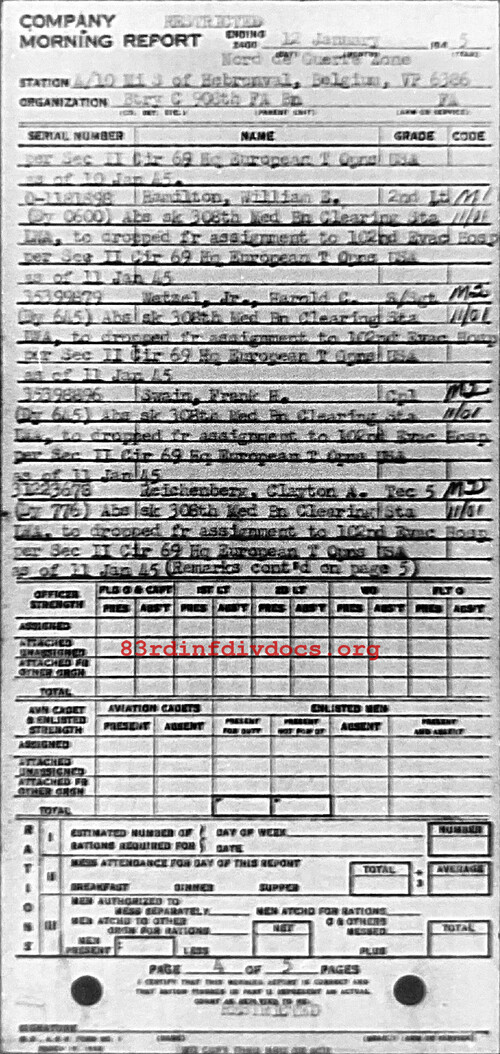 COMPANY RESTRICTED
MORNING REPORT ENDING 2400 12 January 194 5
Nord de Guerre Zone
STATION 4/10 Mi S of Hebronval, Belgium, VP 6386
ORGANIZATION Btry C 908th FA Bn FA
SERIAL NUMBER NAME GRADE CODE
per Sec II Cir 69 Hq European T Opns USA
as of 10 Jan 45.
O-1181898 Hamilton, William E. 2nd Lt
(Dy 0600) Abs sk 308th Med Bn Clearing Sta
LWA, to dropped fr assignment to 102nd Evac Hosp
per Sec II Cir 69 Hq European T Opns USA
as of 11 Jan 45
35399879 Wetzel, Jr., Harold C. S/Sgt
(Dy 645) Abs sk 308th Med Bn Clearing Sta
LWA, to dropped fr assignment to 102nd Evac Hosp
per Sec II Cir 69 Hq European T Opns USA
as of 11 Jan 45
35398896 Swain, Frank H. Cpl
(Dy 645) Abs sk 308th Med Bn Clearing Sta
LWA, to dropped fr assignment to 102nd Evac Hosp
per Sec II Cir 69 Hq European T Opns USA
as of 11 Jan 45
31223678 Reichenberg, Clayton A. Tec 5
(Dy 776) Abs sk 308th Med Bn Clearing Sta
LWA, to dropped fr assignment to 102nd Evac Hosp
per Sec II Cir 69 Hq European T Opns USA
as of 11 Jan 45 (Remarks cont'd on page 5)
OFFICER STRENGTH FLD O & CAPT 1ST LT 2D LT WO FLT O
PRES ABS'T PRES ABS'T PRES ABS'T PRES ABS'T PRES ABS'T
ASSIGNED
ATTACHED UNASSIGNED
83rdinfdivdocs.org
ATTACHED FR OTHER ORGN
TOTAL
AVN CADET & ENLISTED STRENGTH AVIATION CADETS ENLISTED MEN
PRESENT ABSENT PRESENT FOR DUTY PRESENT NOT FOR DY ABSENT PRESENT AND ABSENT
ASSIGNED
ATTACHED UNASSIGNED
ATTACHED FR OTHER ORGN
TOTAL
RATIONS
I ESTIMATED NUMBER OF RATIONS REQUIRED FOR { DAY OF WEEK DATE NUMBER
II MESS ATTENDANCE FOR DAY OF THIS REPORT TOTAL ÷ 3 AVERAGE
BREAKFAST DINNER SUPPER
III MEN AUTHORIZED TO MESS SEPARATELY MEN ATCHD FOR RATIONS
MEN ATCHD TO OTHER ORGN FOR RATIONS NET O & OTHERS MESSED TOTAL
MEN PRESENT LESS PLUS
PAGE 4 OF 5 PAGES
I CERTIFY THAT THIS MORNING REPORT IS CORRECT AND
RESTRICTED
SIGNATURE